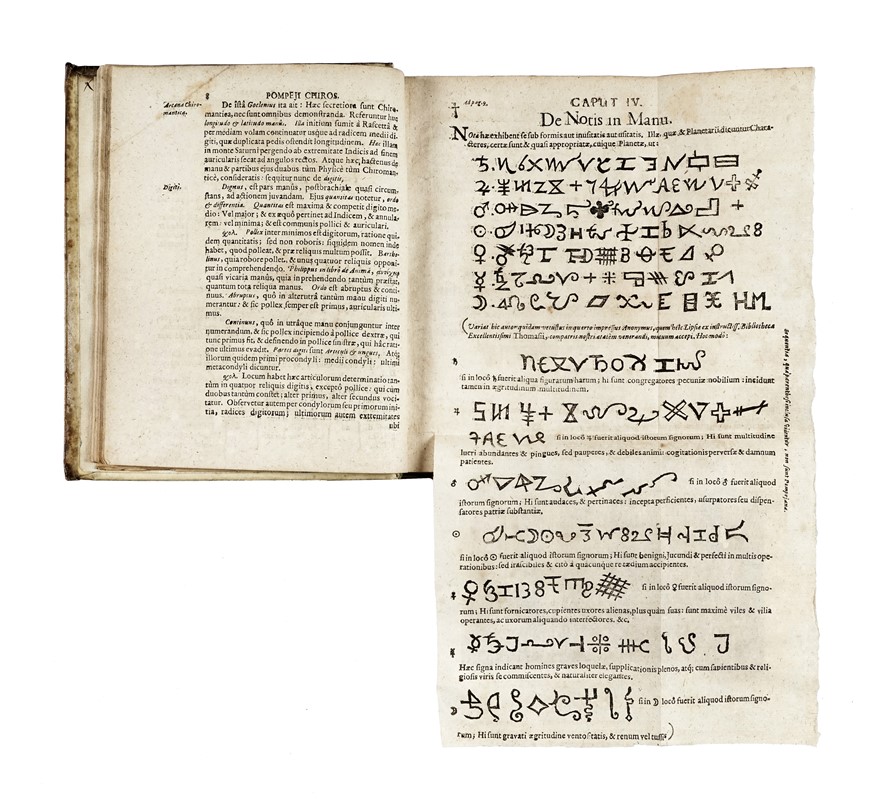 8 POMPEJI CHIROS.
Arcana Chiro-
mantica.
De istâ Goclenius ita ait: Hæc secretiora sunt Chiro-
mantica, nec sunt omnibus demonstranda. Referuntur huc
longitudo & latitudo manûs. Illa initium sumit â Rascettâ &
per mediam volam continuatur usque ad radicem medii di-
giti, quæ duplicata pedis ostendit longitudinem. Hæc illam
in monte Saturni pergendo ab extremitate Indicis ad finem
auricularis secat ad angulos rectos. Atque hæc, hactenus de
manu & partibus ejus duabus tùm Physicè tùm Chiroman-
ticè, consideratis: sequitur nunc de digitis,
Digiti.
Digitus, est pars manûs, postbrachiale quasi circum-
stans, ad actionem juvandam. Ejus quantitas notetur, ordo
& differentia. Quantitas est maxima & competit digito me-
dio: Vel major; & ex æquo pertinet ad Indicem, & annula-
rem: vel minima; & est communis pollici & auriculari.
Pollex inter minimos est digitorum, ratione qui-
dem quantitatis; sed non roboris: siquidem nomen inde
habet, quod polleat, & præ reliquis multum possit. Bartho-
linus, quia robore pollet, & unus quatuor reliquis opponi-
tur in comprehendendo. Philippus in libro de Animâ,
quasi vicaria manus, quia in prehendendo tantùm præstat,
quantum tota reliqua manus. Ordo est abruptus & conti-
nuus. Abruptus, quô in alterutrâ tantùm manu digiti nu-
merantur: & sic pollex semper est primus, auricularis ulti-
mus.
Continuus, quô in utrâque manu conjunguntur inter
numerandum. & sic pollex incipiendô â pollice dextræ, qui
tunc primus fit, & definendo in pollice sinistræ, qui hâc rati-
one ultimus evadit. Partes digiti sunt Articuli & ungues, Atq;
illorum quidem primi procondyli: medii condyli: ultimi
metacondyli dicuntur.
Locum habet hæc articulorum determinatio tan-
tùm in quatuor reliquis digitis, exceptô pollice: qui cùm
duobus tantùm constet; alter primus, alter secundus voci-
tatur. Observetur autem per condylorum seu primorum ini-
tia, radices digitorum; ultimorum autem extremitates
ubi
† Ad pag. 9.
CAPUT IV.
De Notis in Manu.
Notæ hæ exhibent se sub formis aut inusitatis aut usitatis, Illæ quæ & Planetarii dicuntur Chara-
cteres, certæ sunt & quasi appropriatæ, cuique Planetæ, ut:
(Variat hîc autor quidam vetustus in quarto impressus Anonymus, quem hîc Lipsiæ ex instructiss. Bibliotheca
Excellentissimi Thomasii, compatris nostri ætatem venerandi, mutuum accepi, Hoc modo:
♄
si in locô ♄ fuerit aliqua figurarum harum; hi sunt congregatores pecuniæ nobilium: incidunt
tamen in ægritudinum multitudinem.
♃
si in locô ♃ fuerit aliquod istorum signorum; Hi sunt multitudine
lucri abundantes & pingues, sed pauperes, & debiles animi: cogitationis perversæ & damnum
patientes.
♂
si in locô ♂ fuerit aliquod
istorum signorum; Hi sunt audaces, & pertinaces: incepta perficientes, usurpatores seu dispen-
satores patriæ substantiæ,
☉
si in locô ☉ fuerit aliquod istorum signorum; Hi sunt benigni, jucundi & perfecti in multis ope-
rationibus: sed irascibiles & citò â quacunque re tædium accipientes.
♀
si in locô ♀ fuerit aliquod istorum signo-
rum; Hi sunt fornicatores, cupientes uxores alienas, plus quàm suas: sunt maximè viles & vilia
operantes, ac uxorum aliquando interfectores. &c.
☿
Hæc signa indicant homines graves loquelæ, supplicationis plenos, atq; cum sapientibus & reli-
giosis viris se commiscentes, & naturaliter elegantes.
☽
si in ☽ locô fuerit aliquod istorum signo-
rum; Hi sunt gravati ægritudine ventositatis, & renum vel tussis)